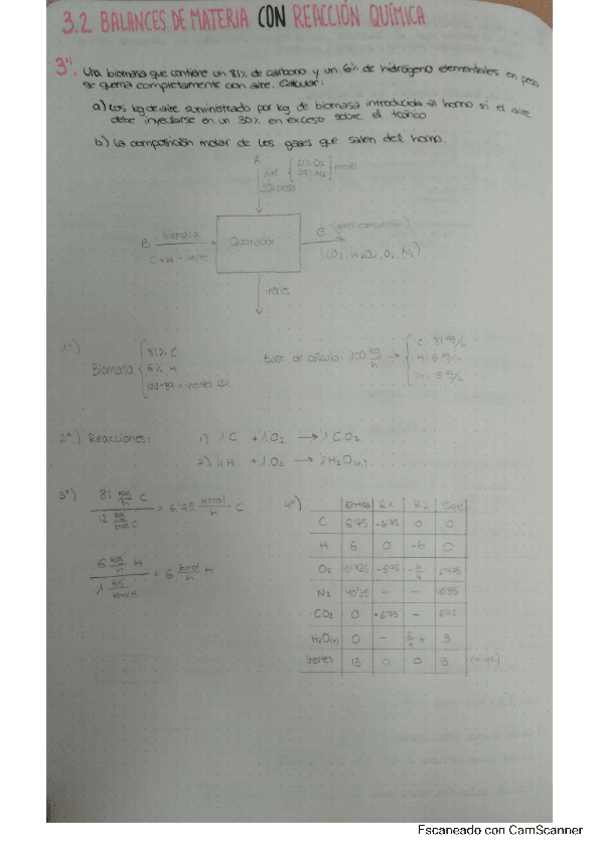 3.2 BALANCES DE MATERIA CON REACCIÓN QUÍMICA
Una biomasa que contiene un 81% de carbono y un 6% de hidrógeno elementales en peso
se quema completamente con aire. Calcular:
a) Los kg de aire suministrado por kg de biomasa introducida al horno si el aire
debe inyectarse en un 30% en exceso sobre el teórico
b) La composición molar de los gases que salen del horno.
A
aire { 21% O2 79% N2 } moles
B biomasa
C+H+inertes
Quemador
(CO2, H2O, O2, N2)
inertes
Biomasa { 81% C
6% H
Base de cálculo: 100 kg/h → { C: 81 kg/h
H: 6 kg/h
2º). Reacciones: 1) 1 C + 1 O2 → 1 CO2
2) 4H + 1 O2 → 2H2O(v)
3º) 81 kg/h C / 12 kg/kmol C = 6'75 kmol/h C
6 kg/h H / 1 kg/kmol H = 6 kmol/h H
4º)
C 6'75 -6'75 0 0
H 6 0 -6 0
O2
N2
CO2 0 +6'75 - 6'75
H2O(v) 0 - 3
inertes 13 0 0
Escaneado con CamScanner